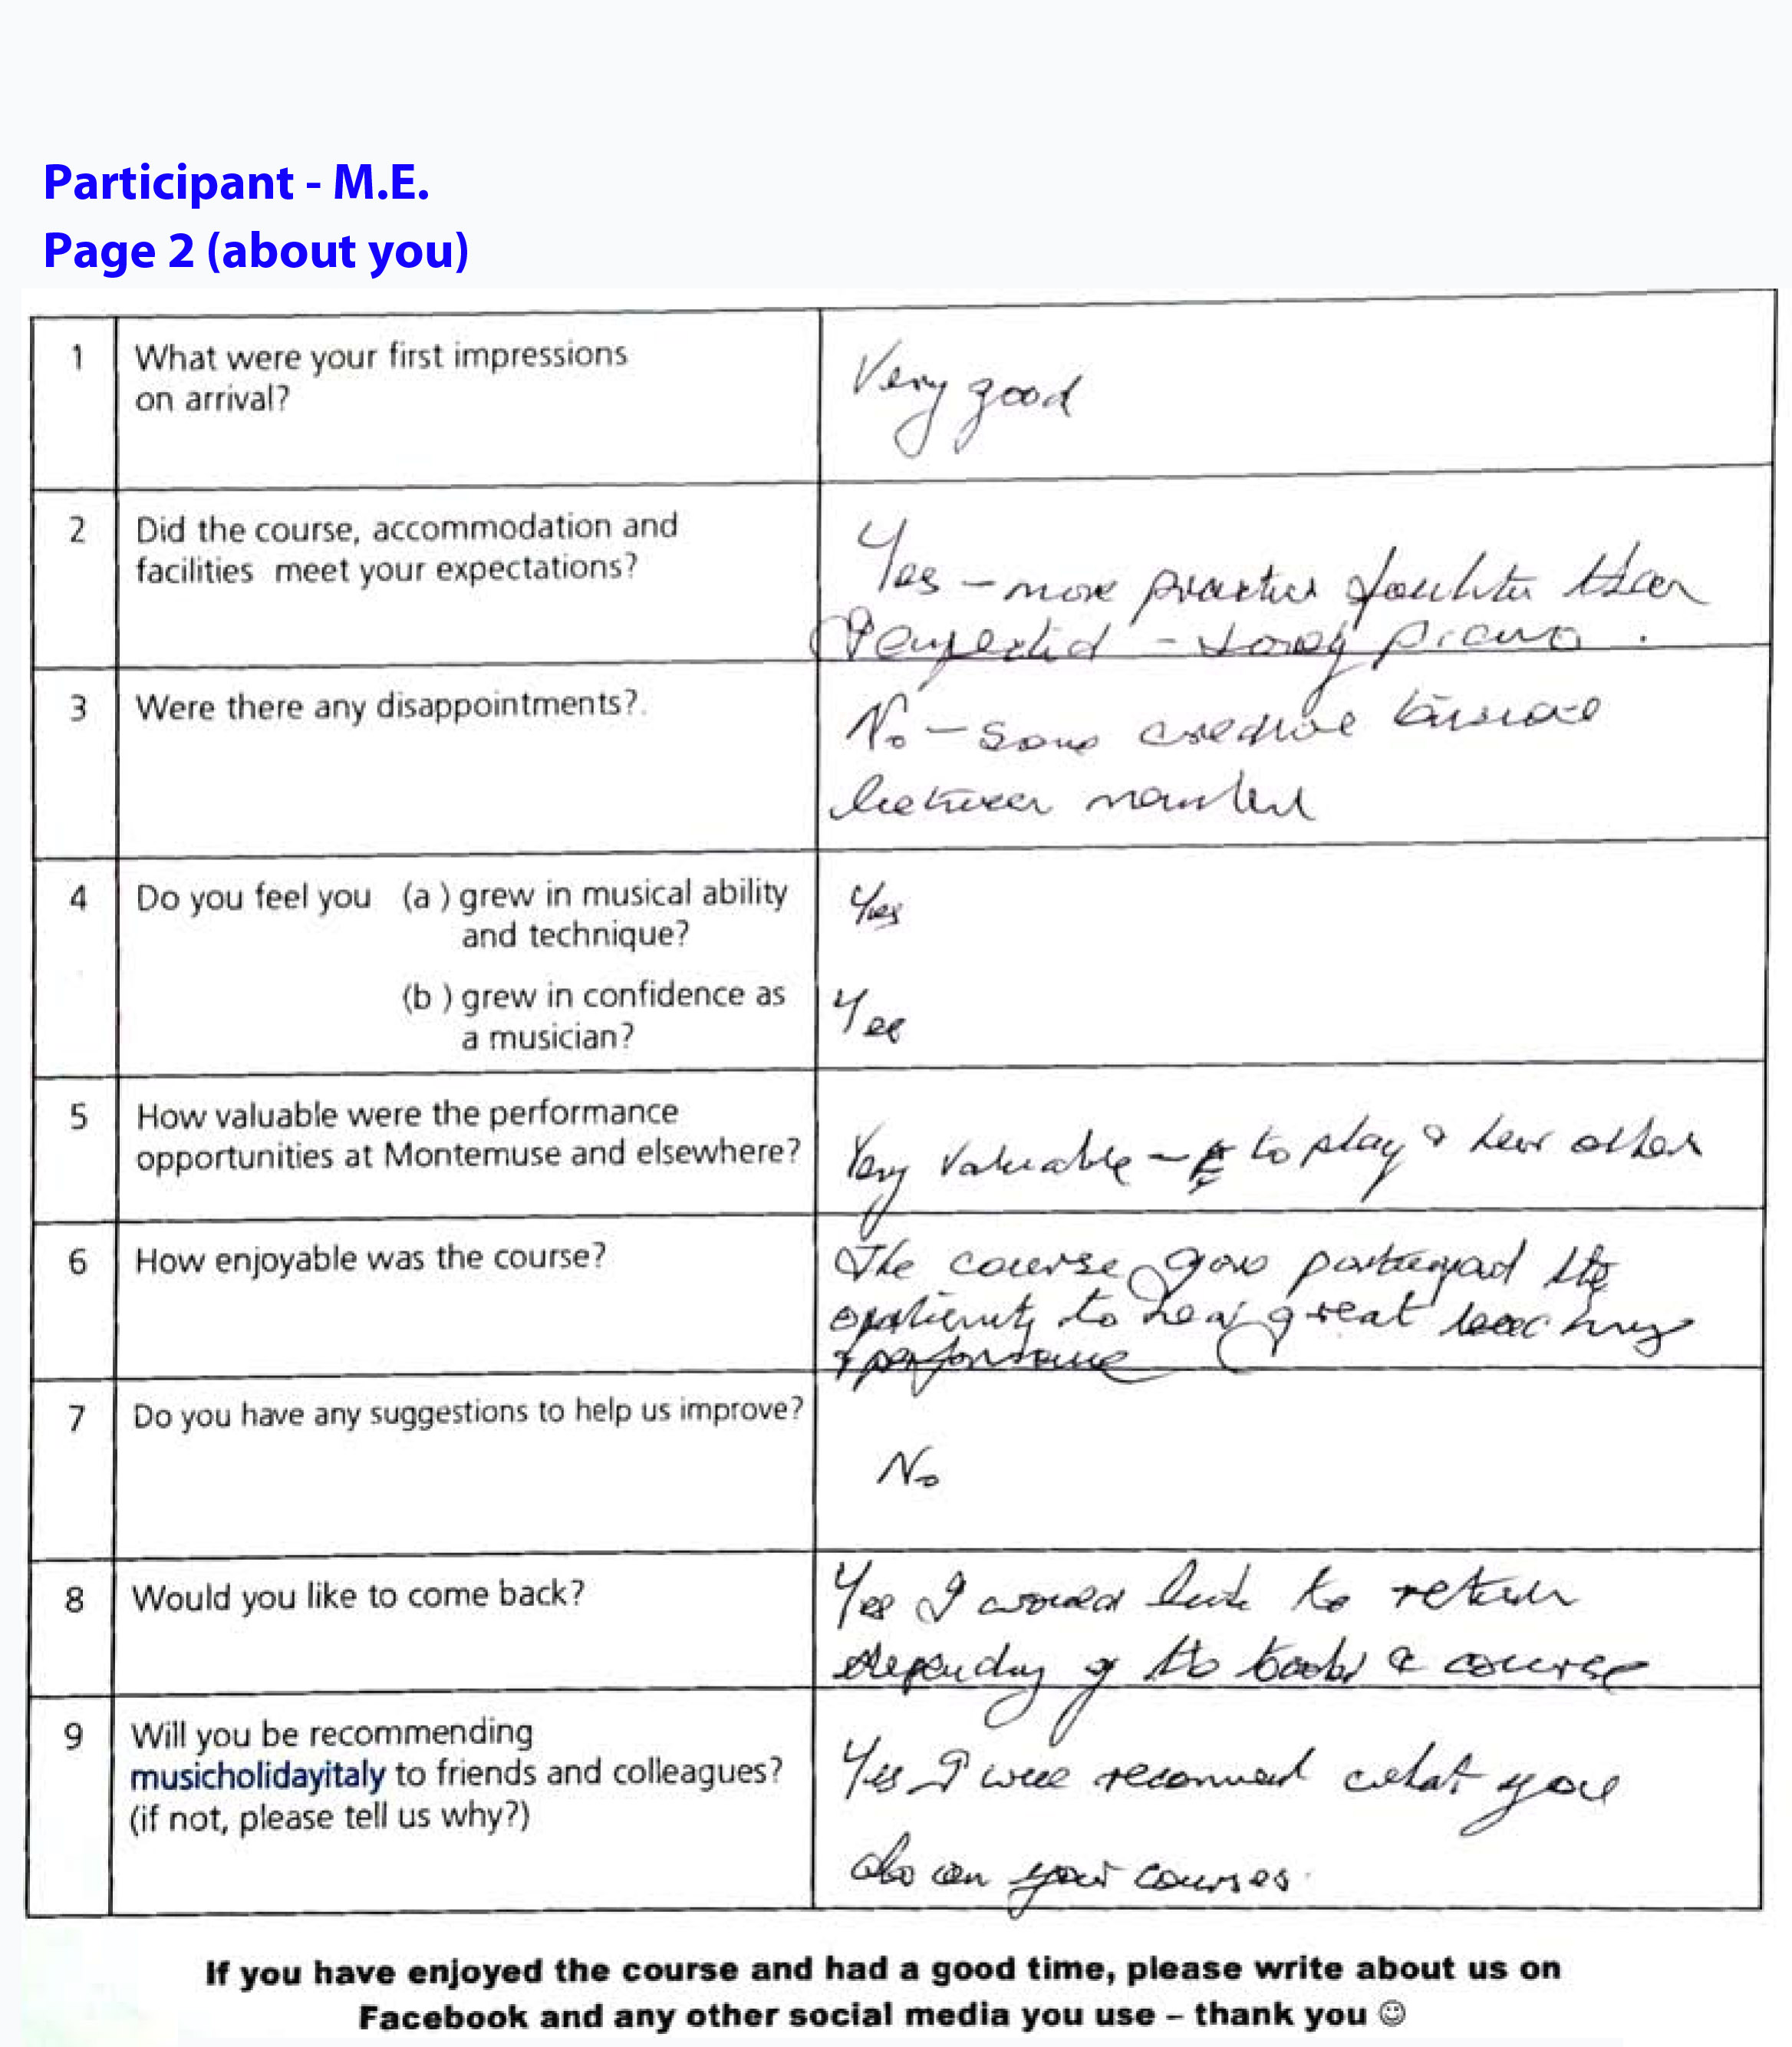 Participant - M.E.
Page 2 (about you)
1 What were your first impressions
on arrival?
Very good
2 Did the course, accommodation and
facilities meet your expectations?
Yes – more practice than
– piano .
3 Were there any disappointments?.
No – some creative
between
4 Do you feel you (a ) grew in musical ability
and technique?
Yes
(b ) grew in confidence as
a musician?
Yes
5 How valuable were the performance
opportunities at Montemuse and elsewhere?
Very valuable – to play & hear other
6 How enjoyable was the course?
The course
to hear great teaching
& performance
7 Do you have any suggestions to help us improve?
No
8 Would you like to come back?
Yes I would to return
course
9 Will you be recommending
musicholidayitaly to friends and colleagues?
(if not, please tell us why?)
Yes I recommend what you
do on your courses.
If you have enjoyed the course and had a good time, please write about us on
Facebook and any other social media you use – thank you ☺